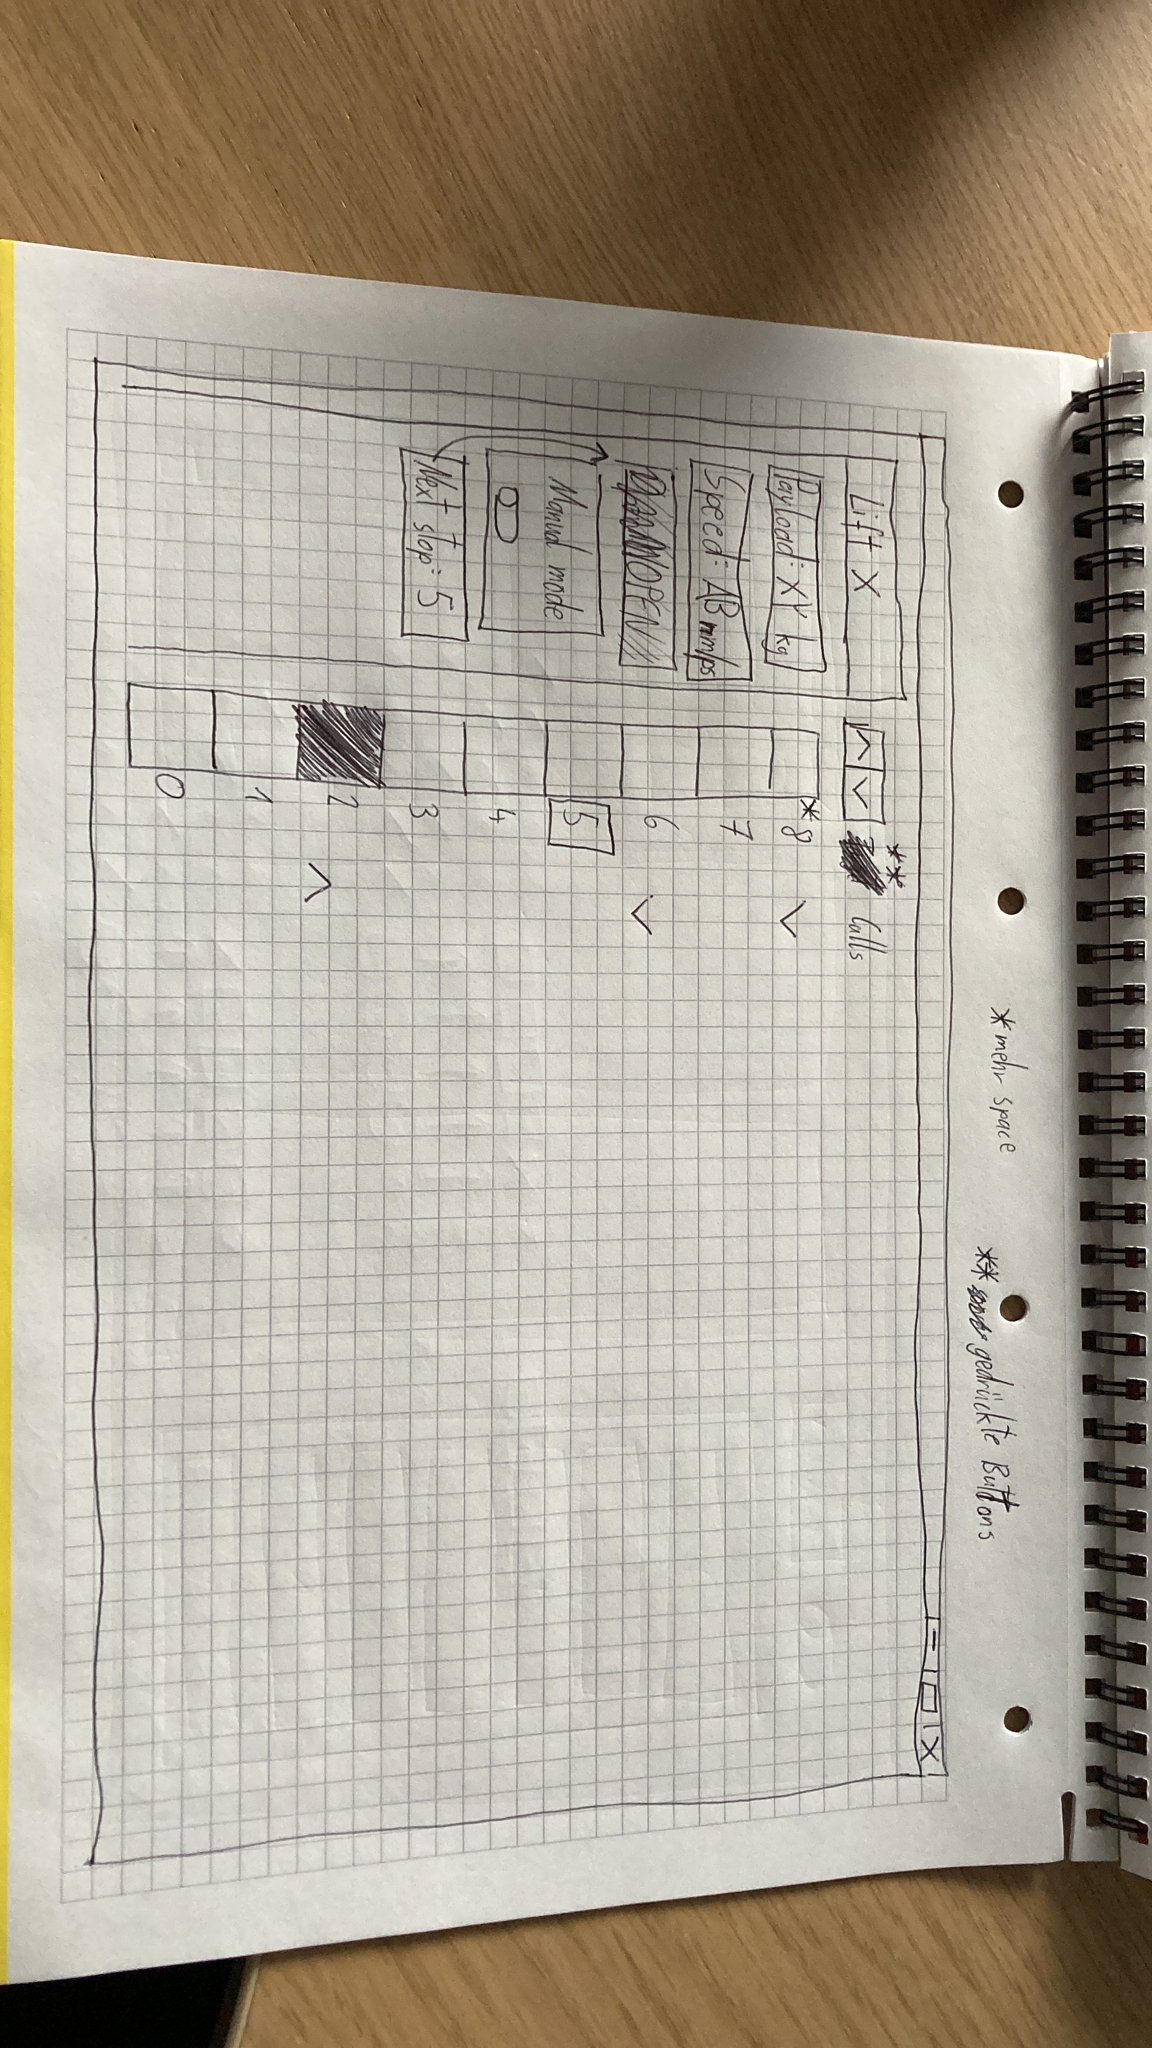 *mehr space
** gedrückte Buttons
Lift X
** Calls
Payload: XY kg
Speed: AB mm/ps
OPEN
Manual mode
Next stop: 5
*8
7
6
5
4
3
2
1
0